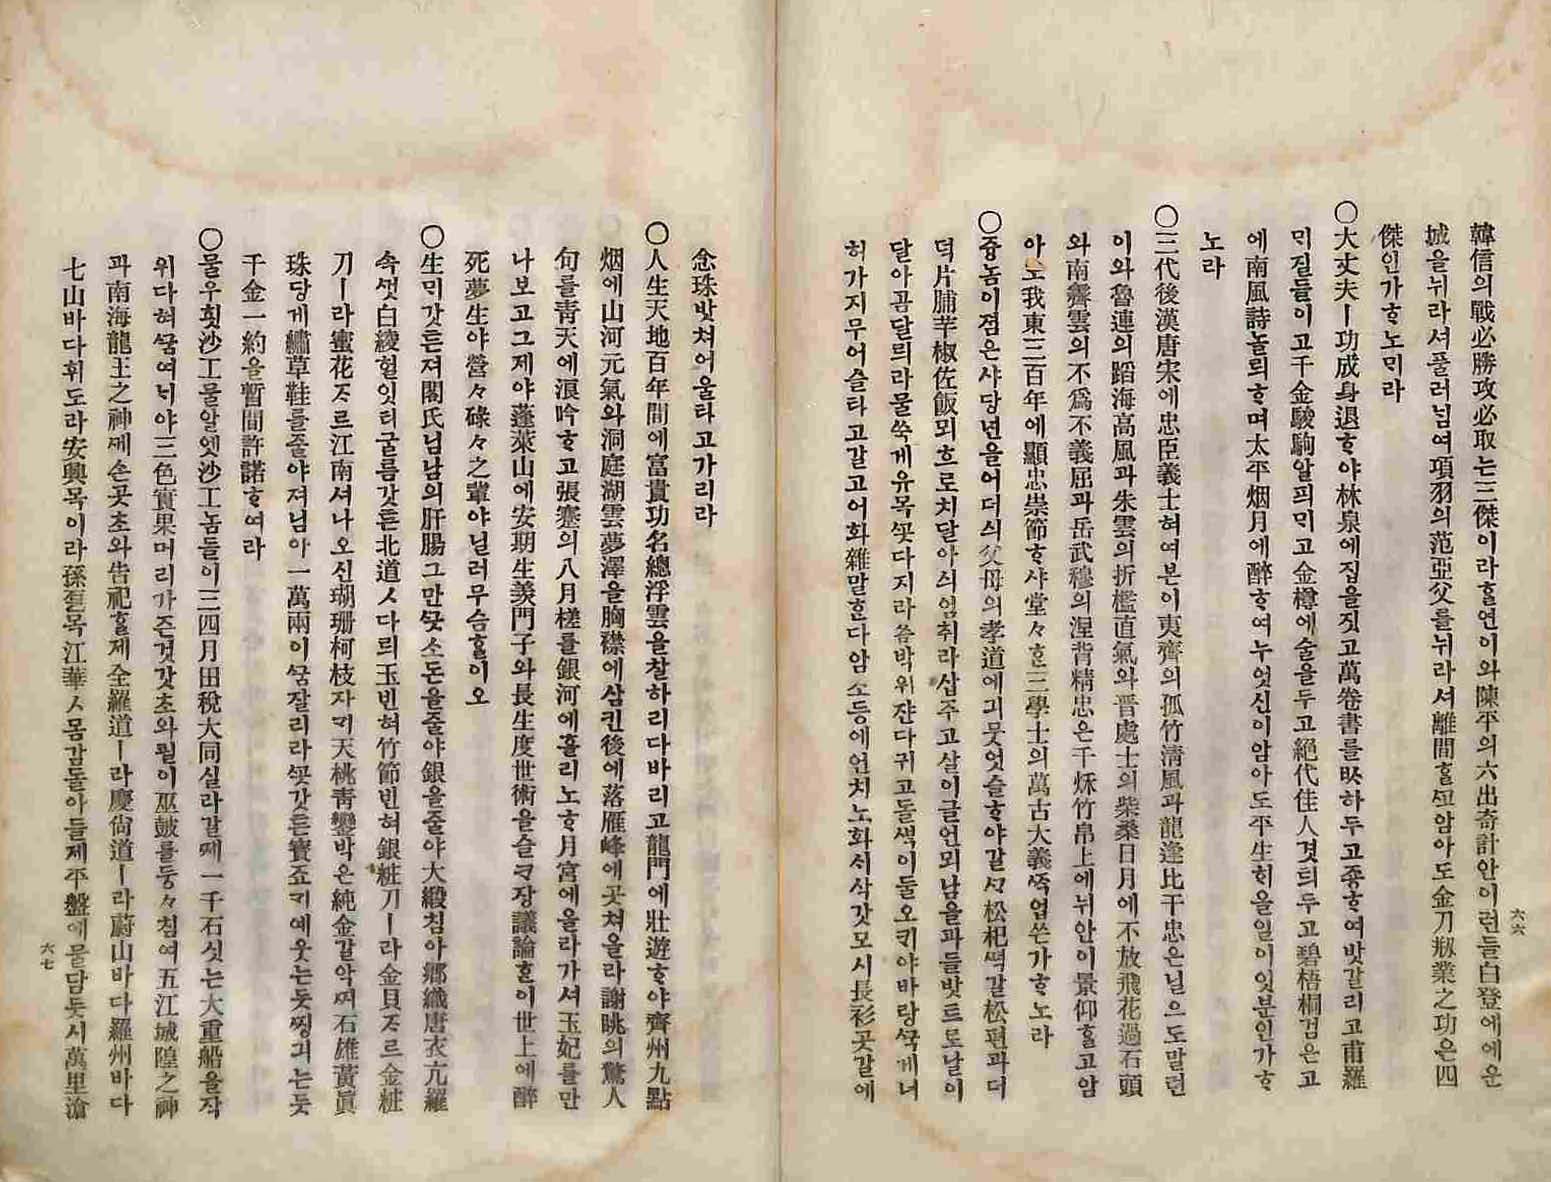 韓信의戰必勝攻必取는三傑이라ᄒᆞᆯ연이와陳平의六出奇計안이런들白登에에운
城을뉘라셔풀러ᄂᆡ며項羽의范亞父를뉘라셔離間ᄒᆞᆯᄭᅩ암아도金刀刱業之功은四
傑인가ᄒᆞ노ᄆᆡ라
〇大丈夫ㅣ功成身退ᄒᆞ야林泉에집을짓고萬卷書를ᄡᅡ하두고종ᄒᆞ여밧갈리고甫羅
ᄆᆡ질들이고千金駿駒알픠ᄆᆡ고金樽에술을두고絕代佳人겻ᄐᆡ두고碧梧桐검은고
에南風詩놀ᄅᆡᄒᆞ며太平烟月에醉ᄒᆞ여누엇신이암아도平生ᄒᆡ올일이잇분인가ᄒᆞ
노라
〇三代後漢唐宋에忠臣義士혀여본이夷齊의孤竹淸風과龍逄比干忠은닐으도말련
이와魯連의蹈海高風과朱雲의折檻直氣와晋處士의柴桑日月에不放飛花過石頭
와南霽雲의不爲不義屈과岳武穆의涅背精忠은千秌竹帛上에뉘안이景仰ᄒᆞᆯ고암
아노我東三百年에顯忠崇節ᄒᆞ샤堂々ᄒᆞᆫ三學士의萬古大義ᄶᅡᆨ업쓴가ᄒᆞ노라
〇즁놈이졈은샤당년을어더싀父母의孝道에긔뭇엇슬ᄒᆞ야갈ᄭᅩ松杞ᄯᅥᆨ갈松편과더
덕片脯芋椒佐飯뫼흐로치달아싀엄취라삽주고살이글언뫼남을과들밧트로날이
달아곰달ᄅᆡ라물쑥게유목ᄭᅩᆺ다지라씀박위쟌다귀고돌ᄲᅢᆨ이둘오키야바랑ᄭᅮᆨ게너
허가지무어슬타고갈고어화雜말ᄒᆞᆫ다암소등에언치노화ᄉᆡ삭갓모시長衫곳갈에
六六
念珠밧쳐어울타고가리라
〇人生天地百年間에富貴功名總浮雲을찰하리다바리고龍門에壯遊ᄒᆞ야齊州九點
烟에山河元氣와洞庭湖雲夢澤을胸襟에삼킨後에落雁峰에곳쳐올라謝眺의驚人
句를靑天에浪吟ᄒᆞ고張騫의八月槎를銀河에흘리노ᄒᆞ月宮에올라가셔玉妃를만
나보고그제야蓬萊山에安期生羨門子와長生度世術을슬ᄏᆞ장議論ᄒᆞᆯ이世上에醉
死夢生야營々碌々之輩야닐러무슴ᄒᆞᆯ이오
〇生ᄆᆡ갓튼져閣氏님남의肝腸그만ᄭᅳᆺ소돈을줄야銀을줄야大緞침아鄕織唐衣亢羅
속것白綾헐잇ᄐᆡ굴름갓튼北道ㅅ다ᄅᆡ玉빈혀竹節빈혀銀粧刀ㅣ라金貝ᄌᆞ르金粧
刀ㅣ라蜜花ᄌᆞ르江南셔나오신珊瑚柯枝자ᄀᆡ天桃靑鸞박은純金갈악ᄭᅧ石雄黃眞
珠당게繡草鞋를줄야져님아一萬兩이ᄭᅮᆷ잘리라ᄭᅩᆺ갓튼寶죠ᄀᆡ예웃는듯찡긔는듯
千金一約을暫間許諾ᄒᆞ여라
〇물우횟沙工물알엣沙工놈들이三四月田稅大同실라갈제一千石싯는大重船을작
위다혀ᄭᅮᆷ여ᄂᆡ야三色實果머리가즌것갓초와필이巫鼓를둥々침여五江城隍之神
과南海龍王之神ᄭᅦ손곳초와告祀ᄒᆞᆯ제全羅道ㅣ라慶尙道ㅣ라蔚山바다羅州바다
七山바다휘도라安興목이라孫돌목江華ㅅ목감돌아들제平盤에물담듯시萬里滄
六七